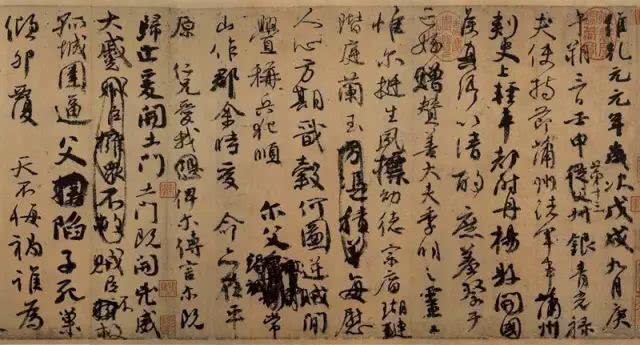 維乾元元年歲次戊戌九月庚
午朔三日壬申第十三叔銀青光祿
夫使持節蒲州諸軍事蒲州
刺史上輕車都尉丹楊縣開國
侯真卿以清酌庶羞祭于
亡姪贈贊善大夫季明之靈曰
惟爾挺生夙標幼德宗廟瑚璉
階庭蘭玉方憑積善每慰
人心方期戩穀何圖逆賊閒
釁稱兵犯順 爾父竭誠常
山作郡余時受 命亦在平
原 仁兄愛我恐俾爾傳言爾既
歸止爰開土門土門既開凶威
大蹙賊臣擁衆不救賊臣不救
孤城圍逼父擒陷子死巢
傾卵覆 天不悔禍誰為